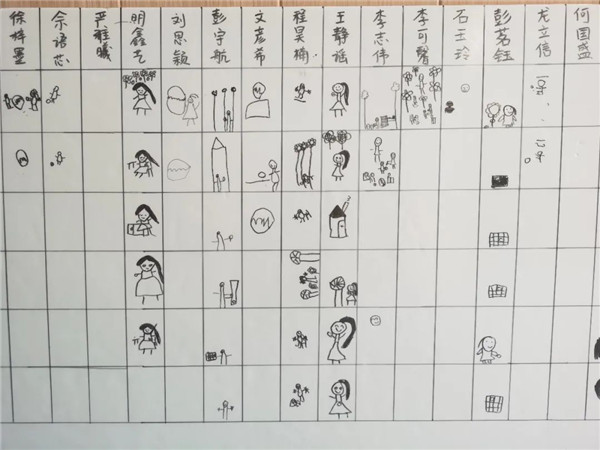 徐梓墨
余语芯
严雅曦
明鑫艺
刘思颖
彭宇航
文彦希
程昊楠
王静谣
李志伟
李可馨
石玉玲
彭茗钰
龙立信
何国盛